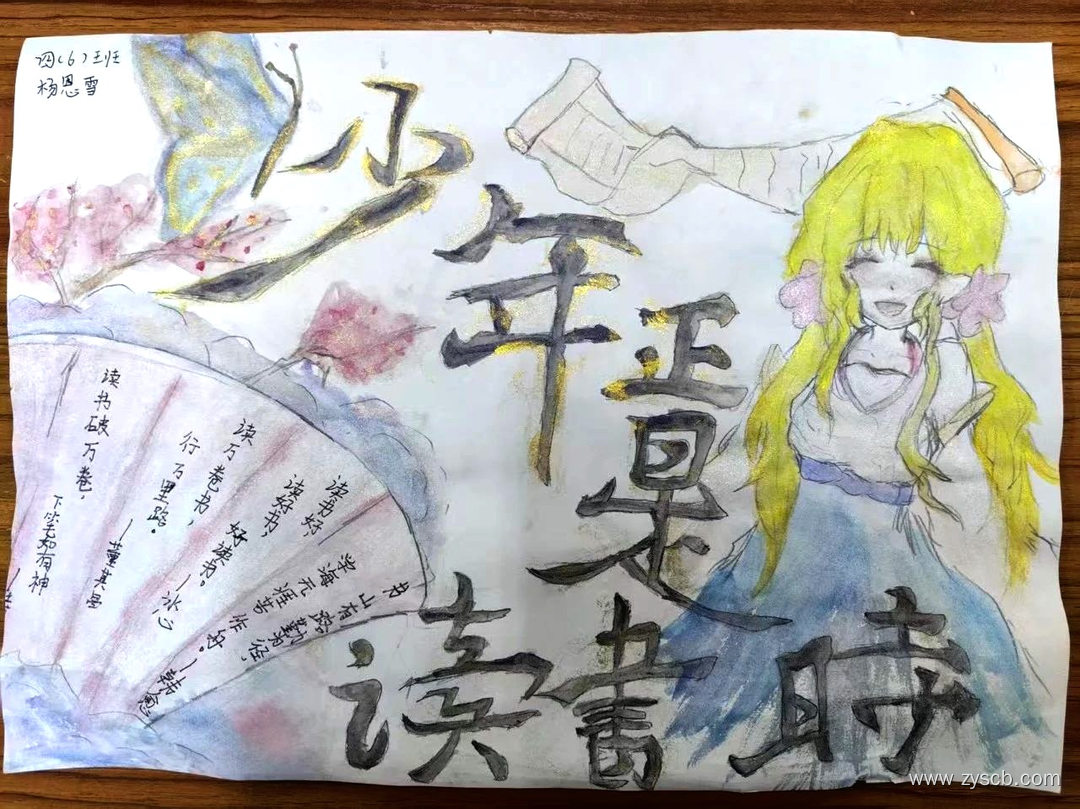 四(6)班
杨恩雪
少年正是读書時
读书破万卷，
下笔如有神
读万卷书，
行万里路。
—董其昌
读书好，
读好书，
好读书。—冰心
书山有路勤为径，
学海无涯苦作舟。—韩愈
www.zyscb.com